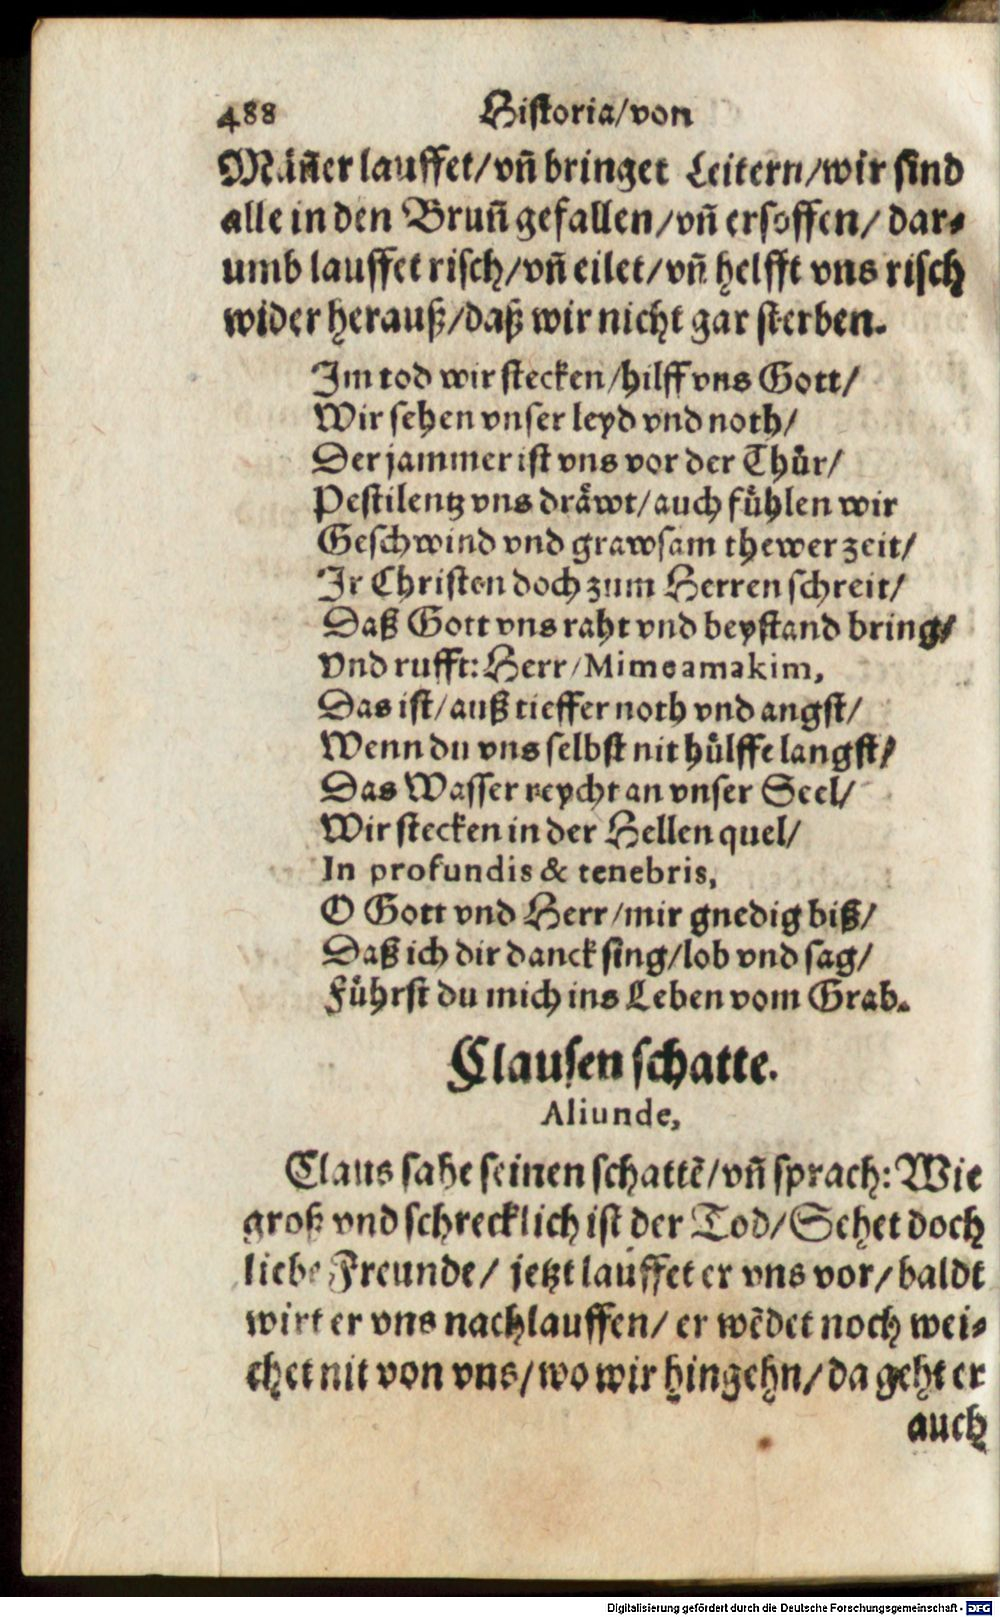 488 Historia/von
Mäñer lauffet/vñ bringet Leitern/wir sind
alle in den Bruñ gefallen/vñ ersoffen/ dar⸗
umb lauffet risch/vñ eilet/vñ helfft vns risch
wider herauß/daß wir nicht gar sterben.
Im tod wir stecken/hilff vns Gott/
Wir sehen vnser leyd vnd noth/
Der jammer ist vns vor der Thür/
Pestilentz vns dräwt/auch fühlen wir
Geschwind vnd grawsam thewer zeit/
Ir Christen doch zum Herren schreit/
Daß Gott vns raht vnd beystand bring/
Vnd rufft: Herr/Mimeamakim,
Das ist/auß tieffer noth vnd angst/
Wenn du vns selbst nit hülffe langst/
Das Wasser reycht an vnser Seel/
Wir stecken in der Hellen quel/
In profundis & tenebris,
O Gott vnd Herr/mir gnedig biß/
Daß ich dir danck sing/lob vnd sag/
Führst du mich ins Leben vom Grab.
Clausen schatte.
Aliunde,
Claus sahe seinen schattẽ/vñ sprach: Wie
groß vnd schrecklich ist der Tod/Sehet doch
liebe Freunde/ jetzt lauffet er vns vor/baldt
wirt er vns nachlauffen/ er wẽdet noch wei⸗
chet nit von vns/wo wir hingehn/da geht er
auch
Digitalisierung gefördert durch die Deutsche Forschungsgemeinschaft - DFG